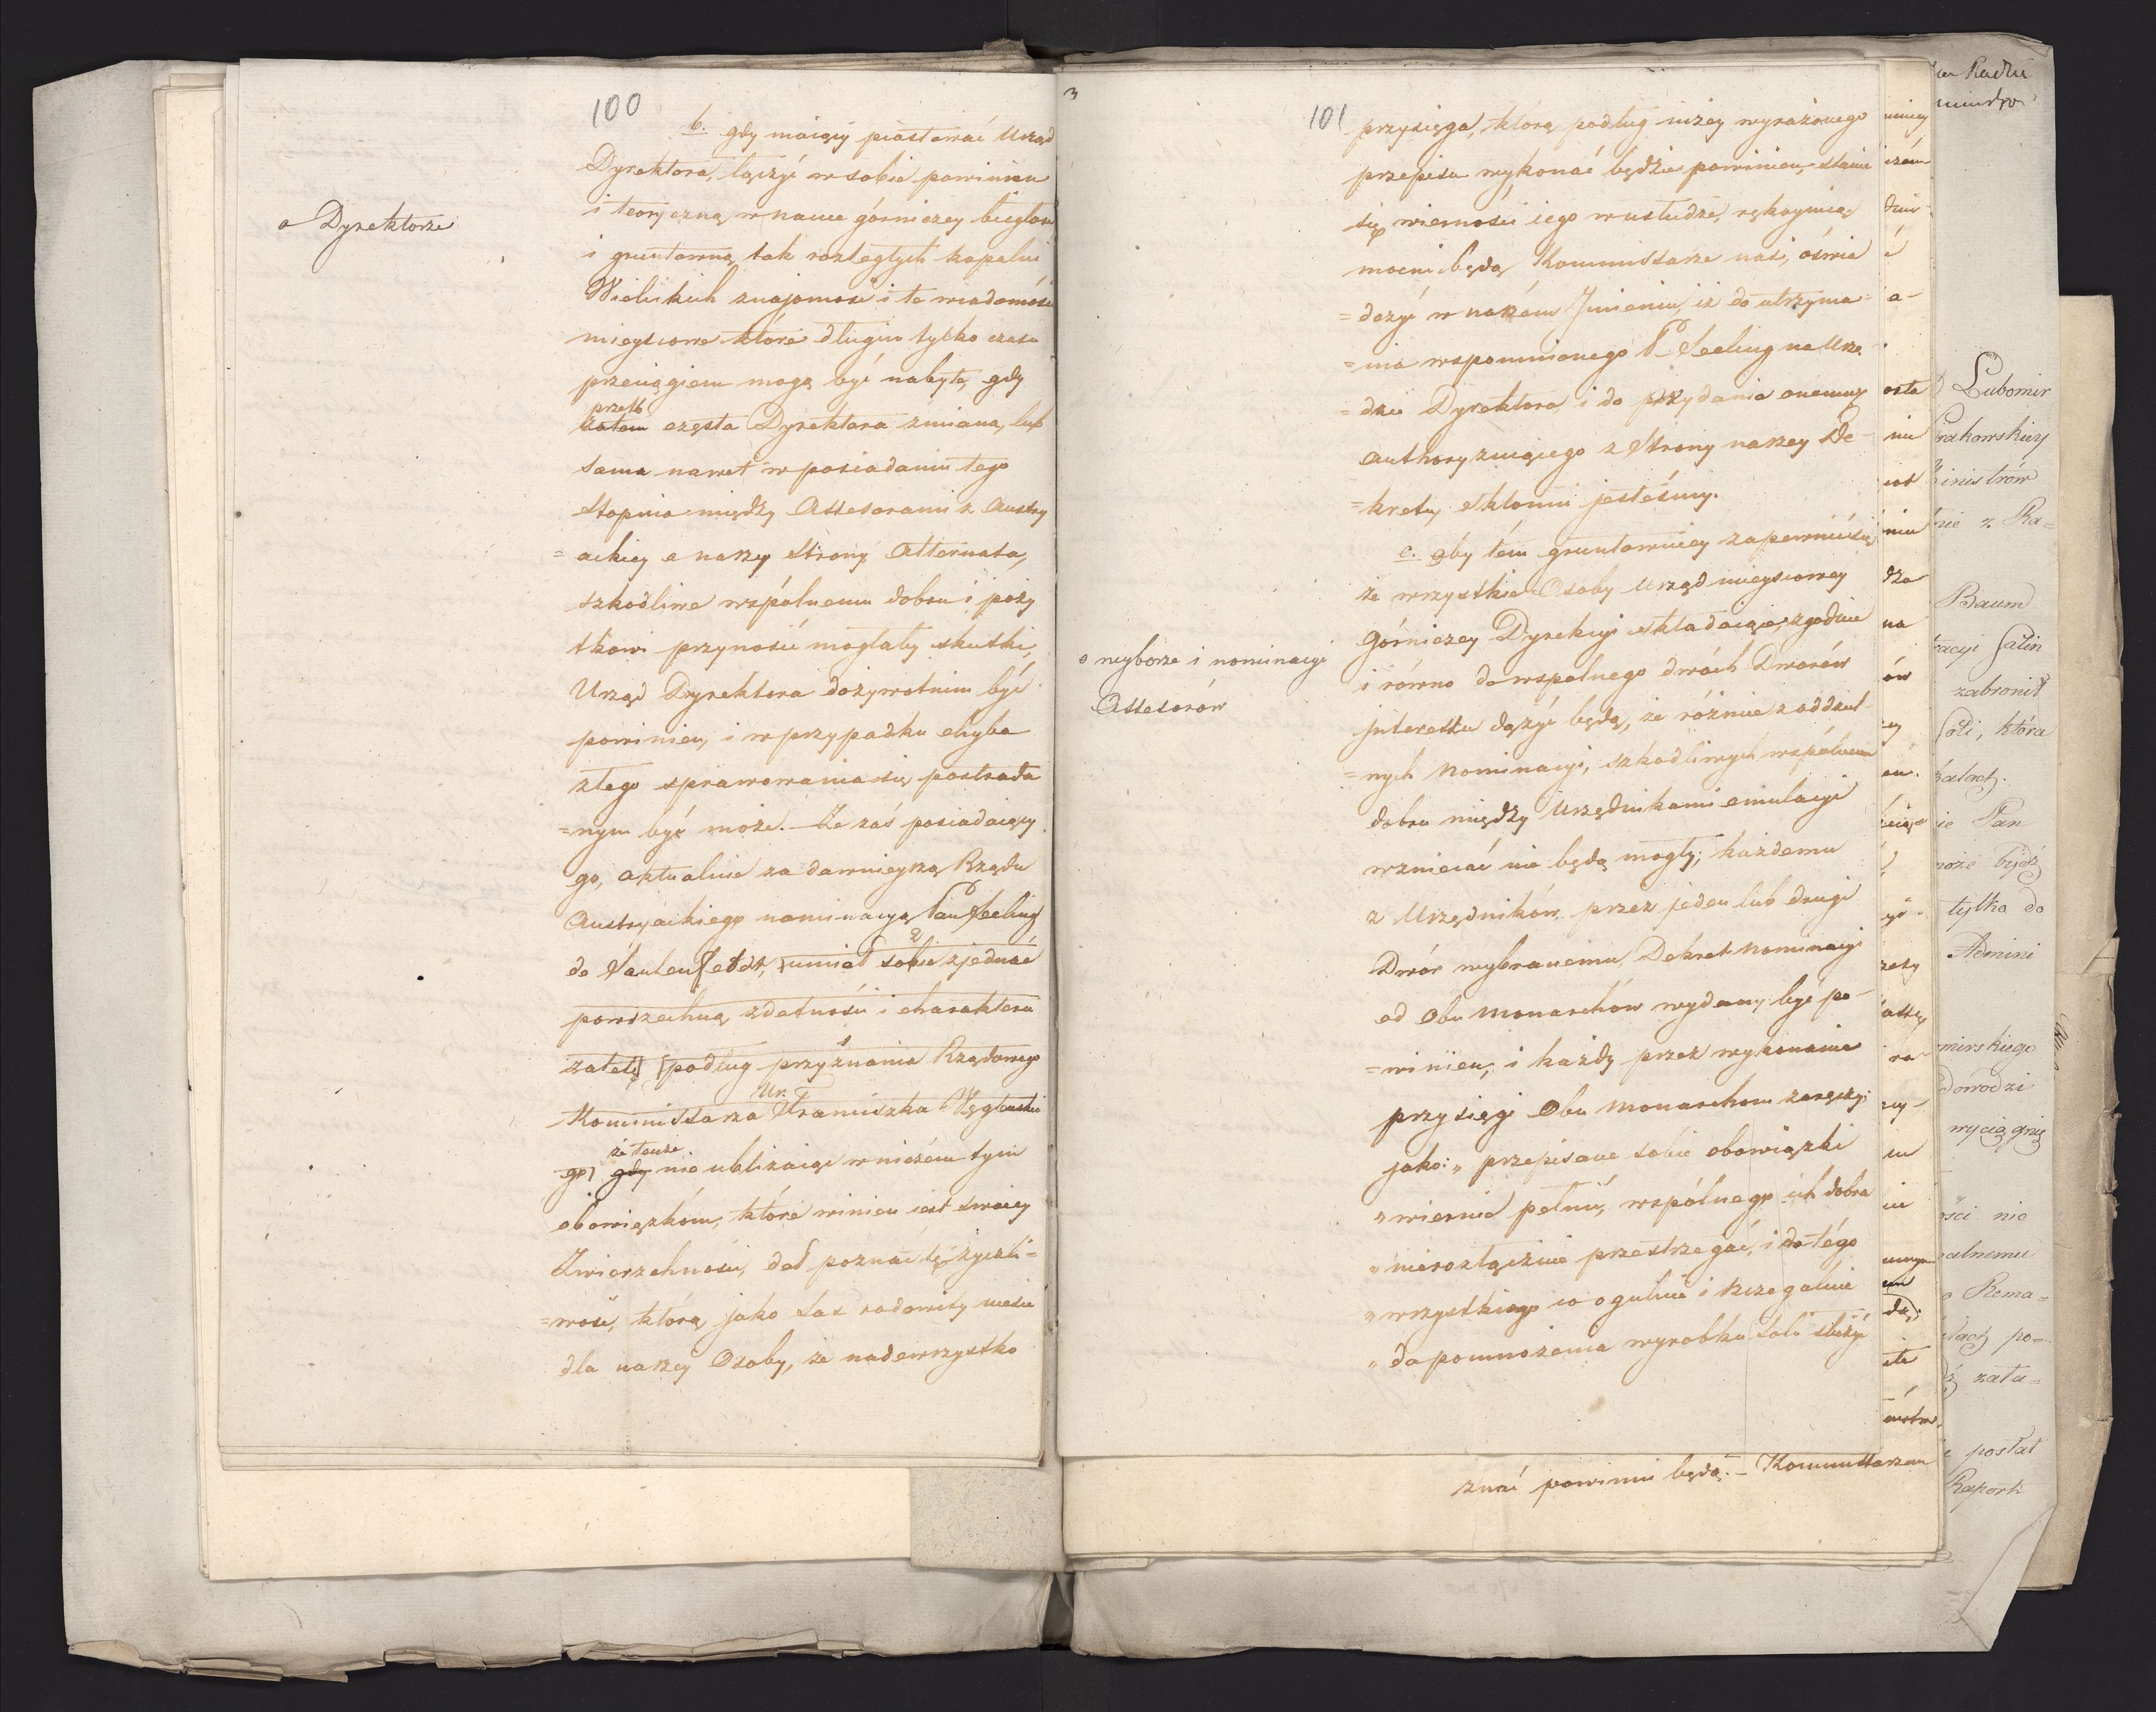 100
b. gdy maiący piastować Urząd
Dyrektora, łączyć w sobie powinien
i teoryczną w nauce górniczey biegłość
o Dyrektorze
i gruntowną tak rozległych kopalni
Wielickich znajomość i te wiadomości
mieyscowe które długim tylko czasu
przeciągiem mogą być nabyte, gdy
przeto
zatem częsta Dyrektora zmiana, lub
sama nawet w posiadaniu tego
Stopnia między Assesorami z Austry
=ackiey a naszey Strony Alternata,
szkodliwe wspólnemu dobru i poży
tkowi przynosić mogłaby skutki,
Urząd Dyrektora dożywotnim być
powinien, i w przypadku chyba
złego sprawowania się postrada
=nym być może. – Że zaś posiadaiący
go, aktualnie za dawnieyszą Rządu
Austryackiego nominacyą Pan Seeling
2
de Saulenfels, umiał sobie zjednać
powszechną zdatności i charakteru
1
zaletę podług przyznania Rządowego
Ur.
Kommissarza Franciszka Węgleński
że tenże
go gdy nie ubliżaiąc w niczém tym
obowiązkom, które winien iest swoiey
Zwierzchności, dał poznać tę życzli=
=wość, którą jako Sas rodowity niesie
dla naszey Osoby, że nadewszystko
3
101
przysięga, którą podług niżey wyrażonego
przepisu wykonać będzie powinien, stanie
się wierności iego w usłudze, rękoymią;
mocni będą Kommissarze nasi, oświa
=dczyć w naszém Jmieniu, iż do utrzyma=
=nia wspomnionego P. Seeling na Urzę
=dzie Dyrektora, i do przydania onemuż
authoryzuiącego z Strony naszey De=
=kretu, skłonni jesteśmy.
c. aby tém gruntowniey zapewnić się
że wszystkie Osoby Urząd mieyscowey
Górniczey Dyrekcyi składaiące, zgodnie
o wyborze i nominacyi
Assesorów
i równo do wspólnego dwóch Dworów
jnteressu dążyć będą, że różnie z oddziel=
=nych Nominacyi, szkodliwych wspólnemu
dobru między Urzędnikami emulacyi
wzniecać nie będą mogły; każdemu
z Urzędników, przez jeden lub drugi
Dwór wybranemu, Dekret Nominacyi
od Obu Monarchów wydany być po=
=winien, i każdy przez wykonanie
przysięgi Obu Monarchom zaręczy:
jako: „ przepisane sobie obowiązki
„ wiernie pełnić, wspólnego ich dobra
„ nierozłącznie przestrzegać, i do tego
„ wszystkiego co ogulnie i szczegulnie
„ do pomnożenia wyrobku Soli służyć
znać powinni będą. – Kommissarzom
Lubomir
Krakowskiey
Ministrów
Baum
Salin
zabronił
Soli, która
Pan
może bydź
tylko do
Admini
dowodzi
wyciągnię
nie
Rema=
po=
zała=
posłał
Raport